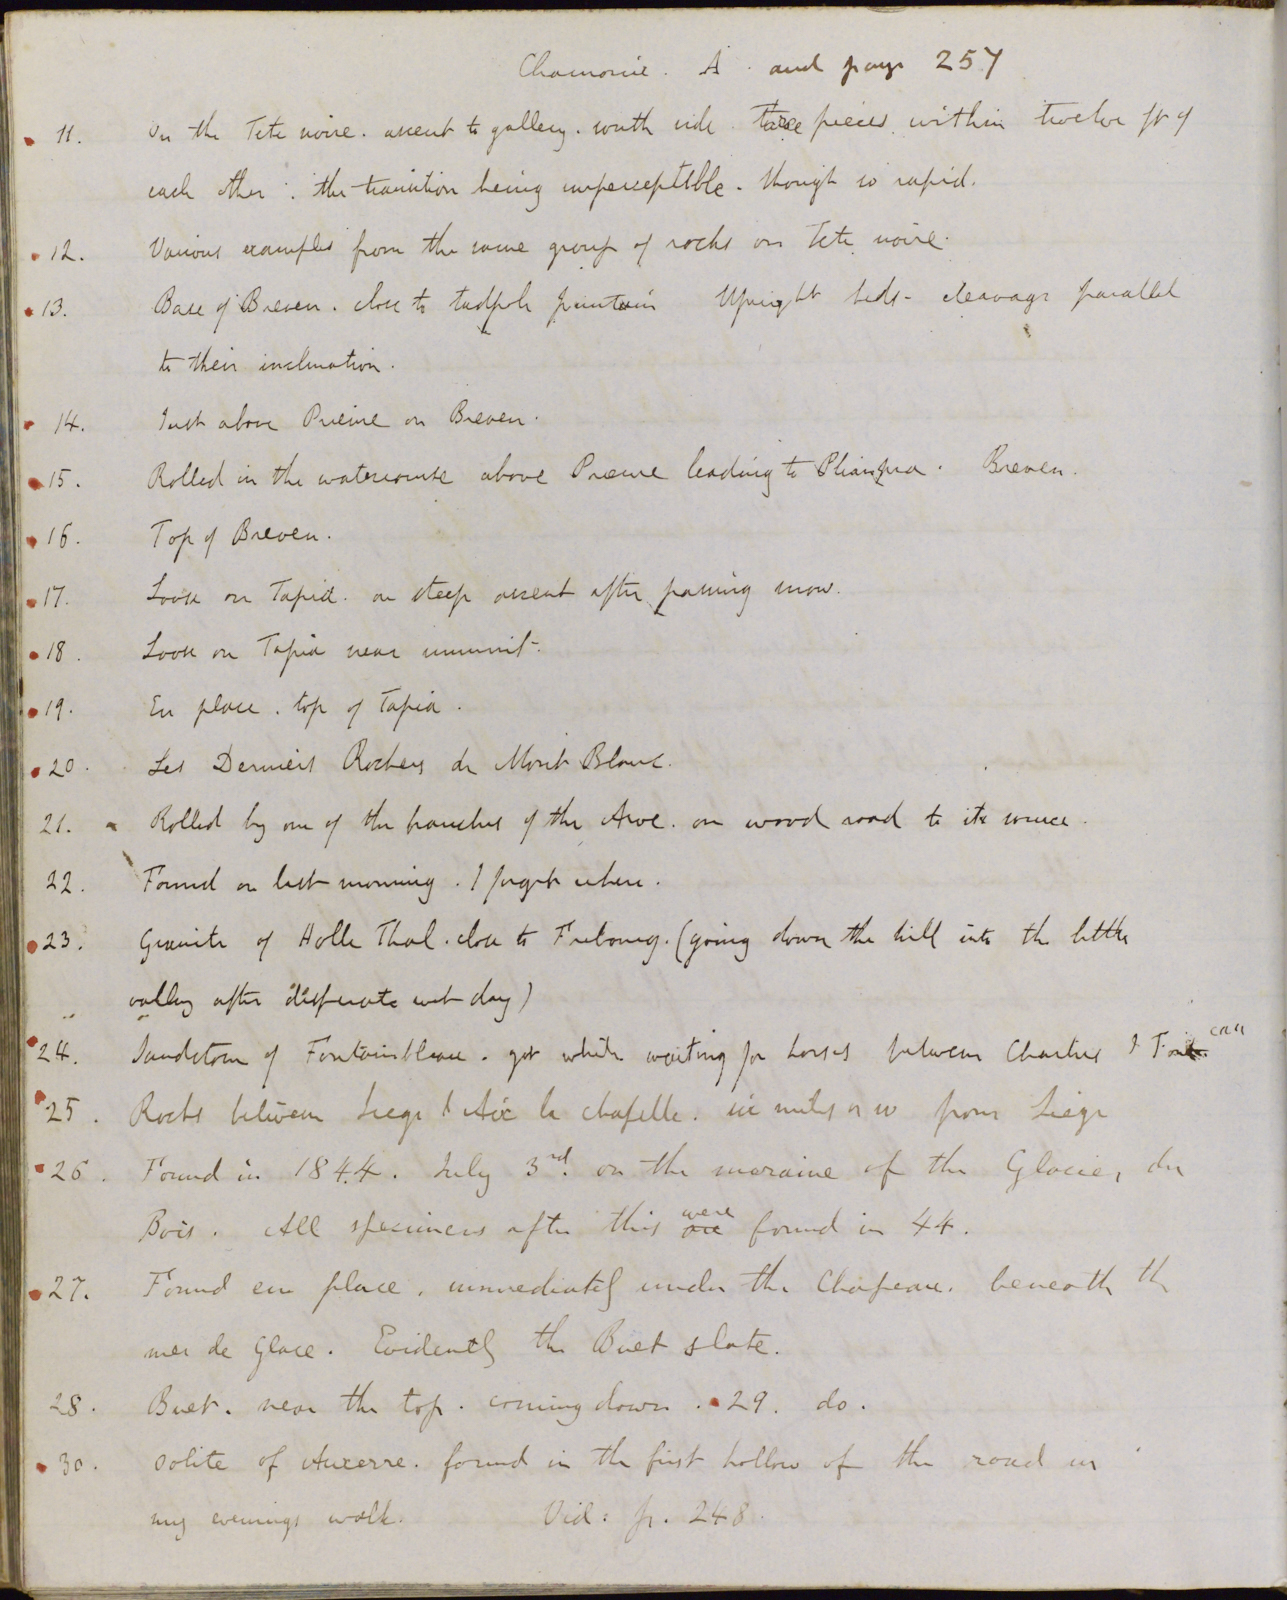 Chamonix. A. and page 257
11. On the Tete noire. ascent to gallery. south side three pieces within twelve ft of
each other: the transition being imperceptible. though so rapid.
12. Various examples from the same group of rocks on Tete noire.
13. Base of Breven. close to tadpole fountain Upright beds - cleavage parallel
to their inclination.
14. Just above Prieure on Breven.
15. Rolled in the watercourse above Prieure leading to Plianpra. Breven.
16. Top of Breven.
17. Loose on Tapia. on steep ascent after passing snow.
18. Loose on Tapia near summit.
19. En place. top of Tapia.
20. Les Derniers Rochers de Mont Blanc.
21. Rolled by one of the branches of the Arve. on wood road to its source.
22. Found on last morning. I forget where.
23. Granite of Holle Thal. close to Fribourg. (going down the hill into the little
valley after desperate wet day)
24. Sandstone of Fontainbleau. got while waiting for horses between Chartres &
25. Rocks between Liege & Aix la chapelle. six miles or so from Liege
26. Found in 1844. July 3rd. on the moraine of the Glacier du
Bois. All specimens after this were found in 44.
27. Found en place. immediately under the Chapeau. beneath the
mer de Glace. Evidently the Buet slate.
28. Buet. near the top. coming down. 29. do.
30. oolite of Auxerre. found in the first hollow of the road in
my evenings walk. Vid: p. 248.